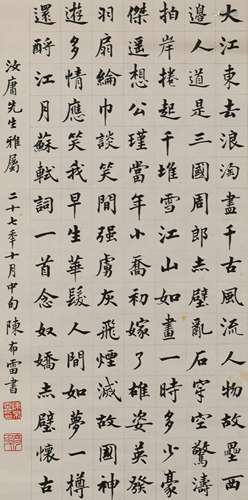 大江東去浪淘盡千古風流人物故壘西
邊人道是三國周郎赤壁亂石穿空驚濤
拍岸捲起千堆雪江山如畫一時多少豪
傑遙想公瑾當年小喬初嫁了雄姿英發
羽扇綸巾談笑間强虜灰飛煙滅故國神
遊多情應笑我早生華髮人間如夢一樽
還酹江月蘇軾詞一首念奴嬌赤壁懷古
汝庸先生雅屬 二十七年十月中旬 陳布雷書